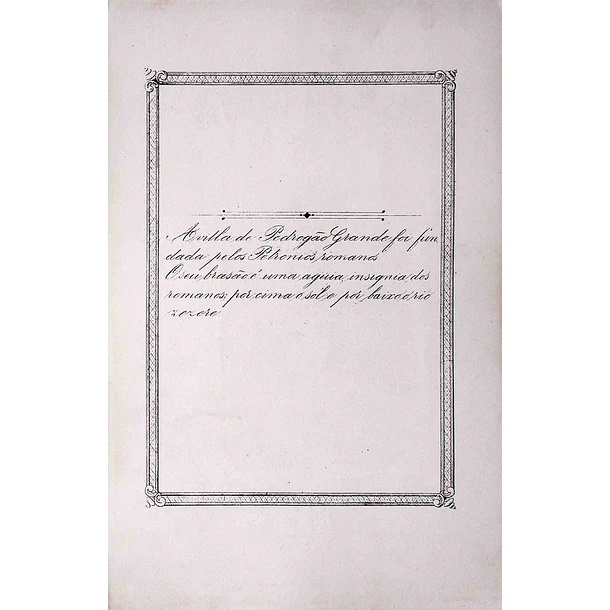 A villa de Pedrogão Grande foi fun
dada pelos Petronios romanos
O seu brasão é uma aguia, insignia dos
romanos; por cima o sol e por baixo o rio
zezere